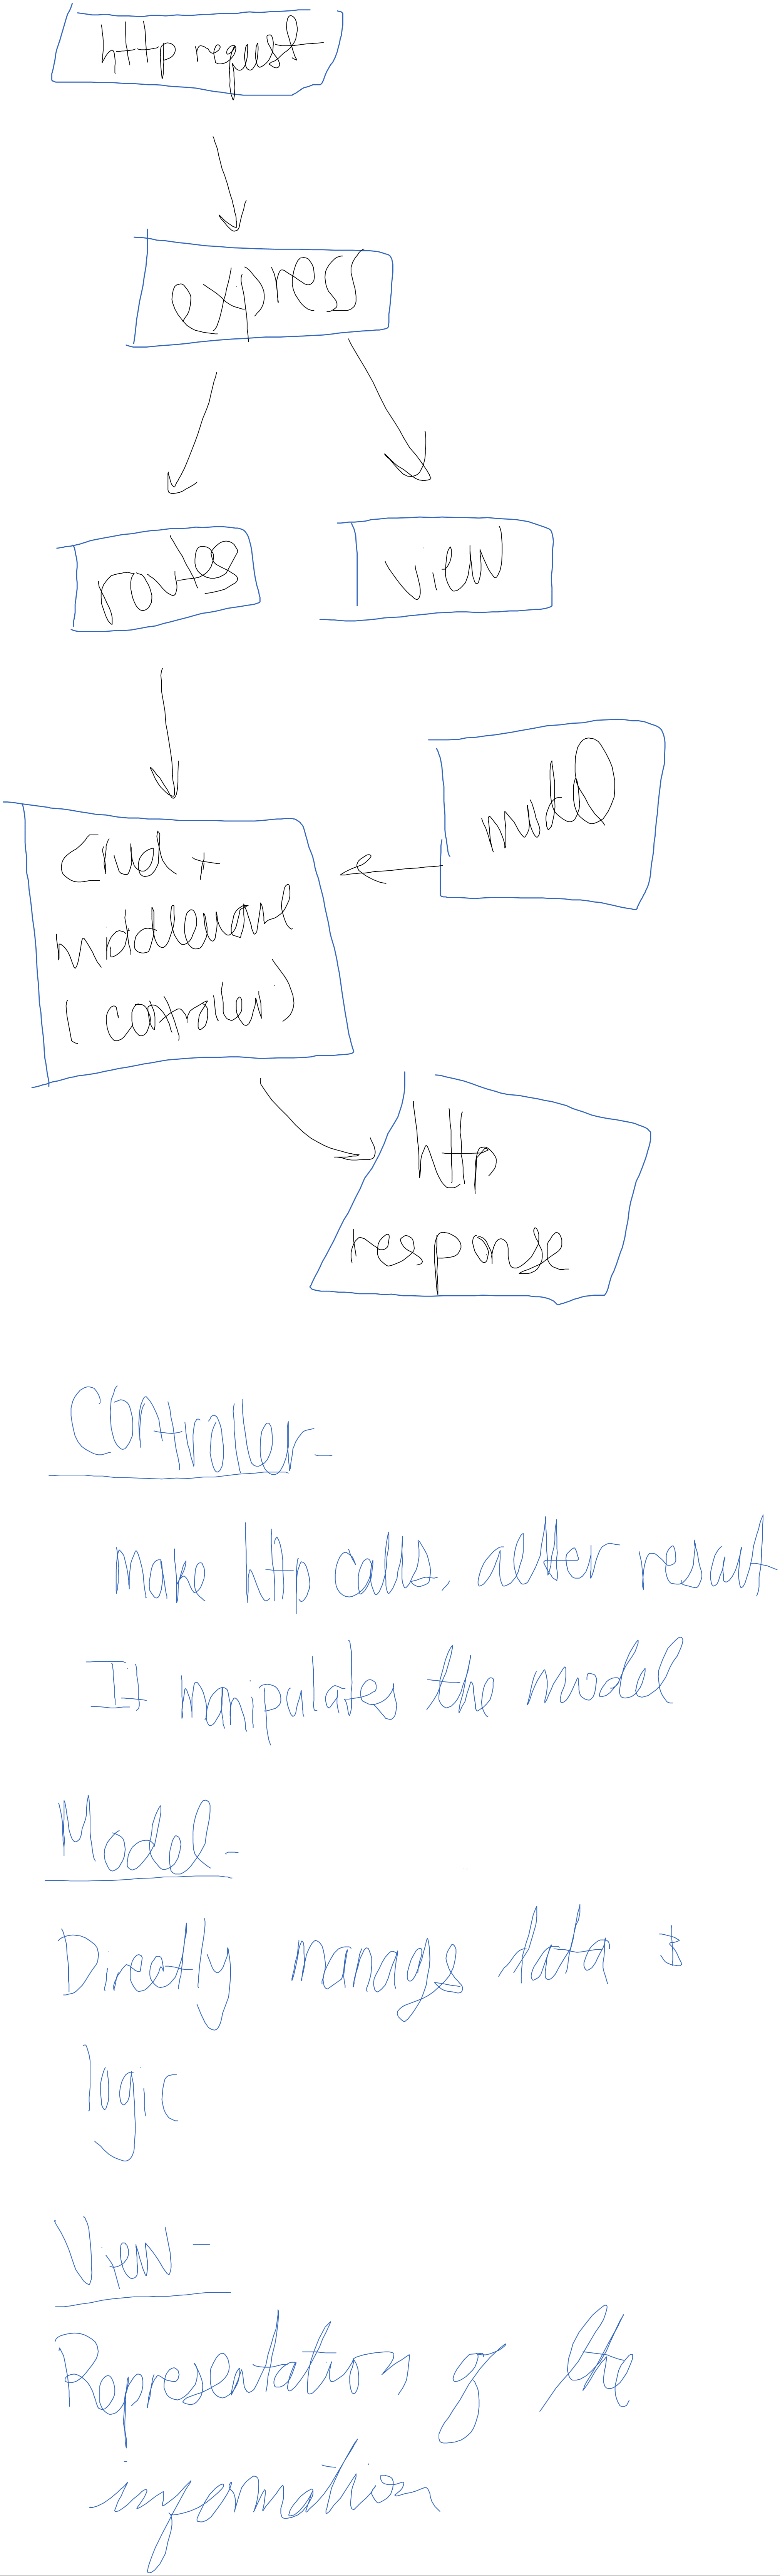 http request
express
routes
view
model
Crud +
middleware
(controller)
http
response
Controller-
make http calls, alter result
It manipulates the model
Model-
Directly manage data &
logic
View-
Representation of the
information